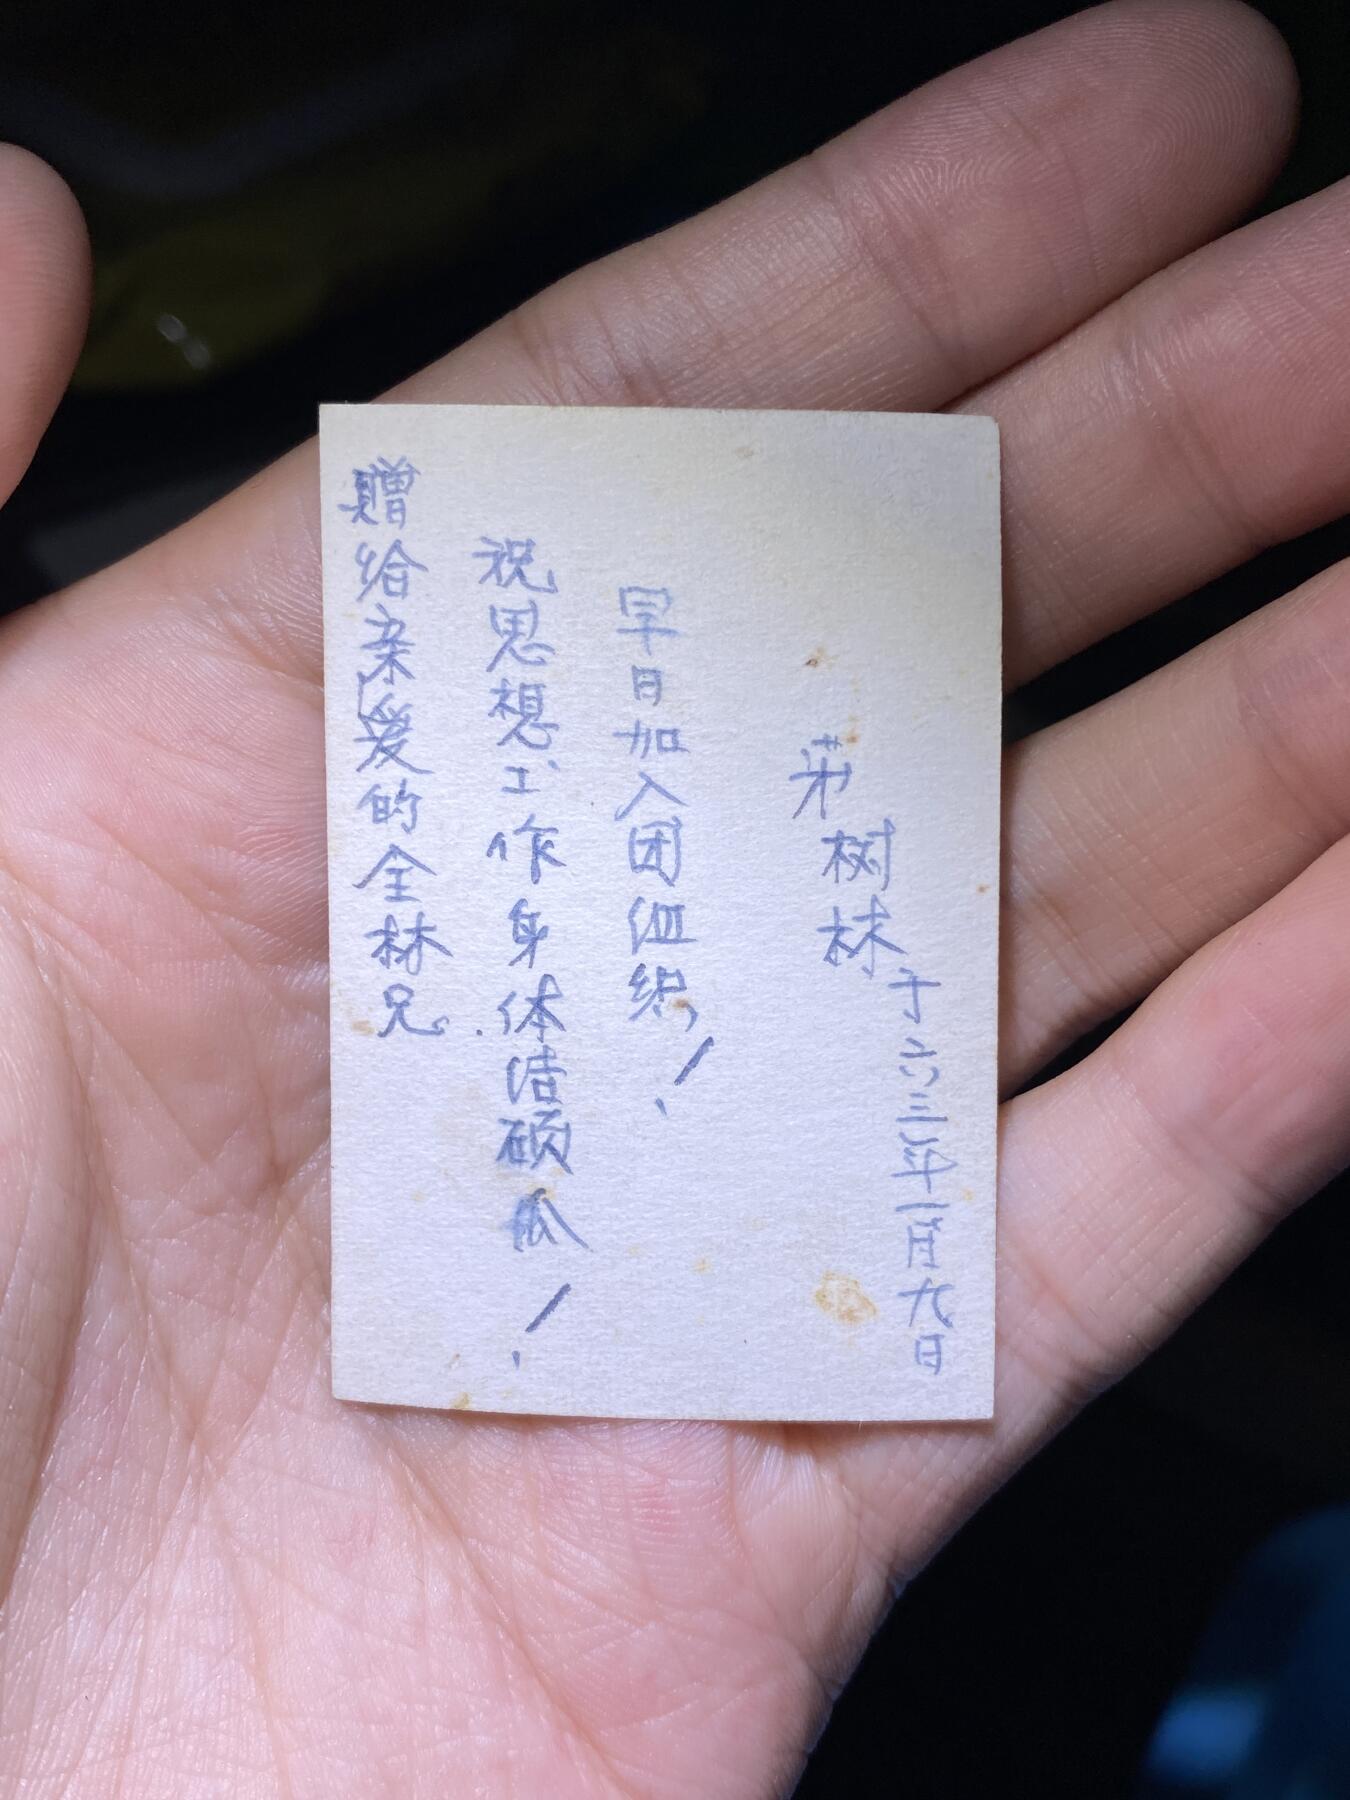 赠给亲爱的全林兄。
祝思想工作身体洁硕瓜！
早日加入团组织！
弟树林
于六三年一月九日